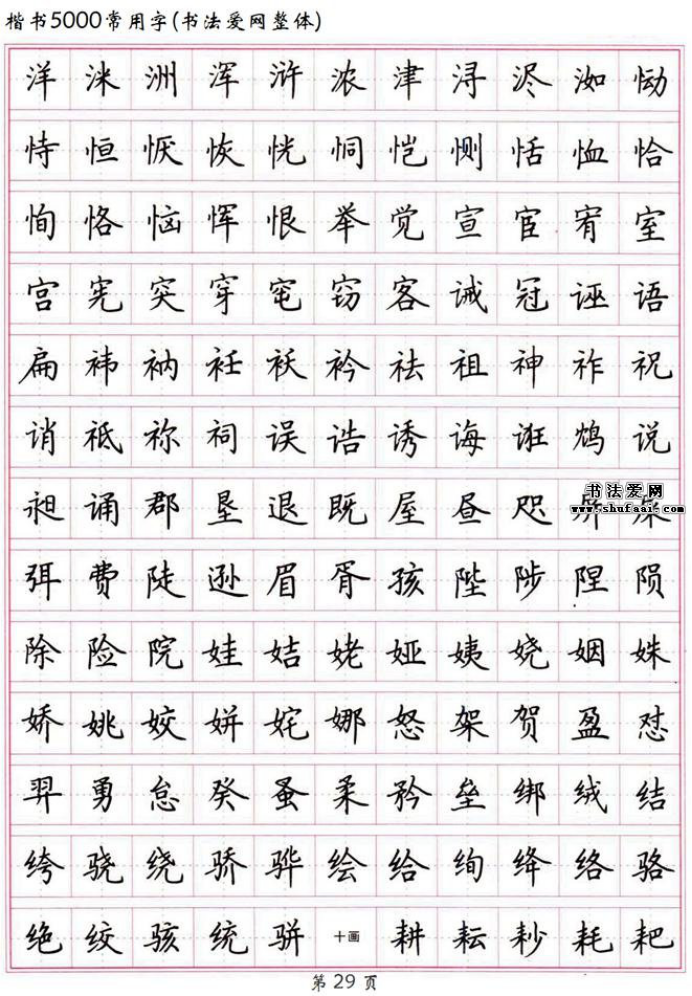 楷书5000常用字(书法爱网整体)
洋洣洲浑浒浓津浔浕洳恸
恃恒恹恢恍恫恺恻恬恤恰
恂恪恼恽恨举觉宣宦宥室
宫宪突穿窀窃客诫冠诬语
扁袆衲衽袄衿祛祖神祚祝
诮祗祢祠误诰诱诲诳鸩说
昶诵郡垦退既屋昼咫
书法爱网
www.shufaai.com
弭费陡逊眉胥孩陛陟陧陨
除险院娃姞姥娅姨娆姻姝
娇姚姣姘姹娜怒架贺盈怼
羿勇怠癸蚤柔矜垒绑绒结
绔骁绕骄骅绘给绚绛络骆
绝绞骇统骈十画耕耘耖耗耙
第 29 页